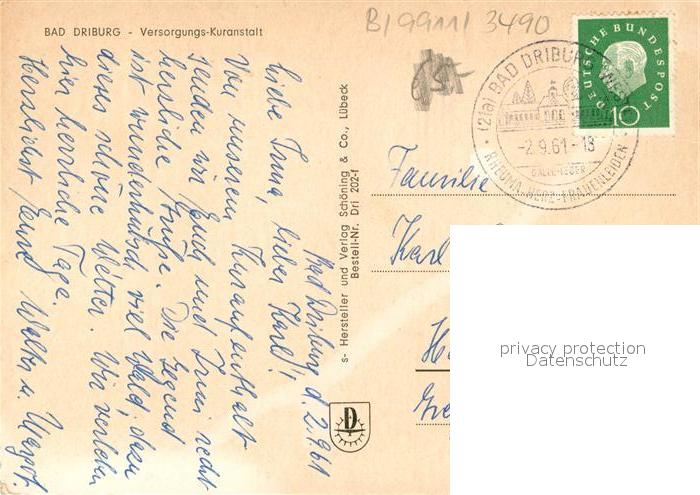 BAD DRIBURG - Versorgungs-Kuranstalt
B/99111/3490
DEUTSCHE BUNDESPOST
10
(21a) BAD DRIBURG
-2.9.61-18
GALLE-LEBER
RHEUMA-HERZ-FRAUENLEIDEN
Bad Driburg d. 2.9.61
Liebe Irma, lieber Karl!
Von unserem Kuraufenthalt
senden wir Euch und recht
herzliche Grüße. Die Gegend
ist wunderhübsch, viel Wald, dazu
dieses schöne Wetter. Wir verleben
hier herrliche Tage.
Herzlichst Walter u. Margot.
s- Hersteller und Verlag Schöning & Co., Lübeck
Bestell-Nr. Dri 202-f
Familie
Karl
D
privacy protection
Datenschutz